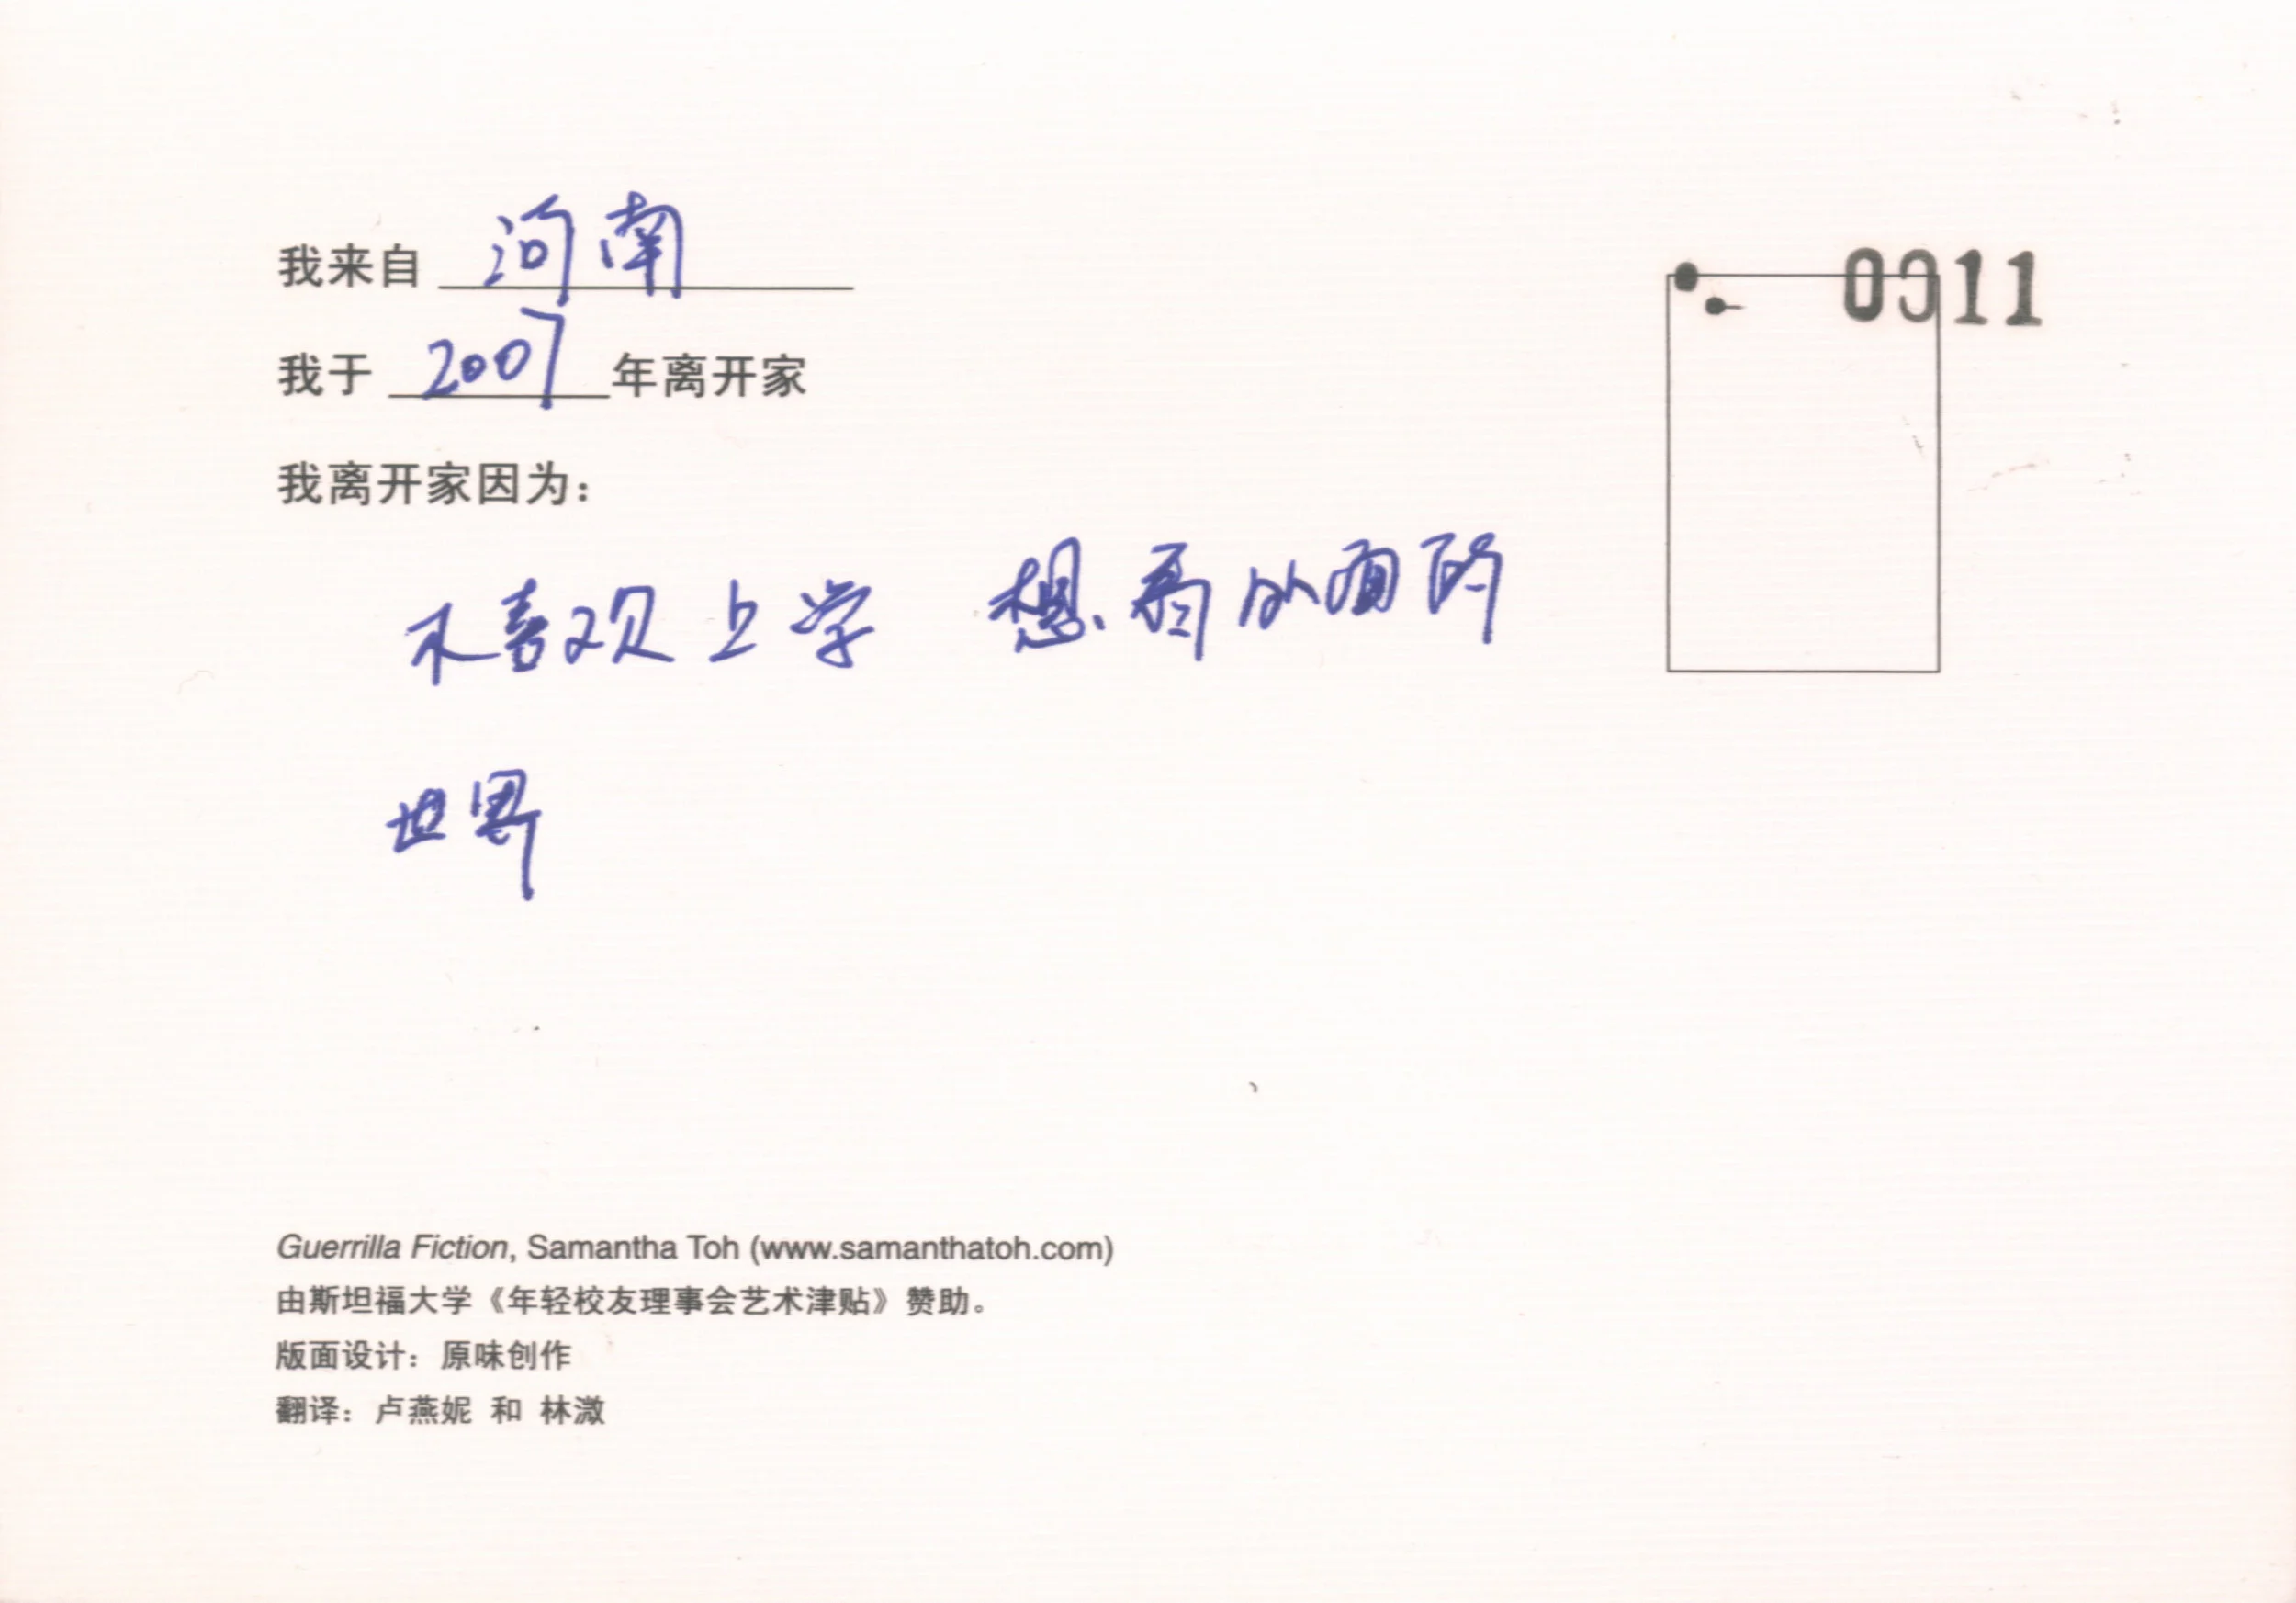 我来自 河南
0011
我于 2007 年离开家
我离开家因为：
不喜欢上学 想看外面的
世界
Guerrilla Fiction, Samantha Toh (www.samanthatoh.com)
由斯坦福大学《年轻校友理事会艺术津贴》赞助。
版面设计：原味创作
翻译：卢燕妮 和 林溦